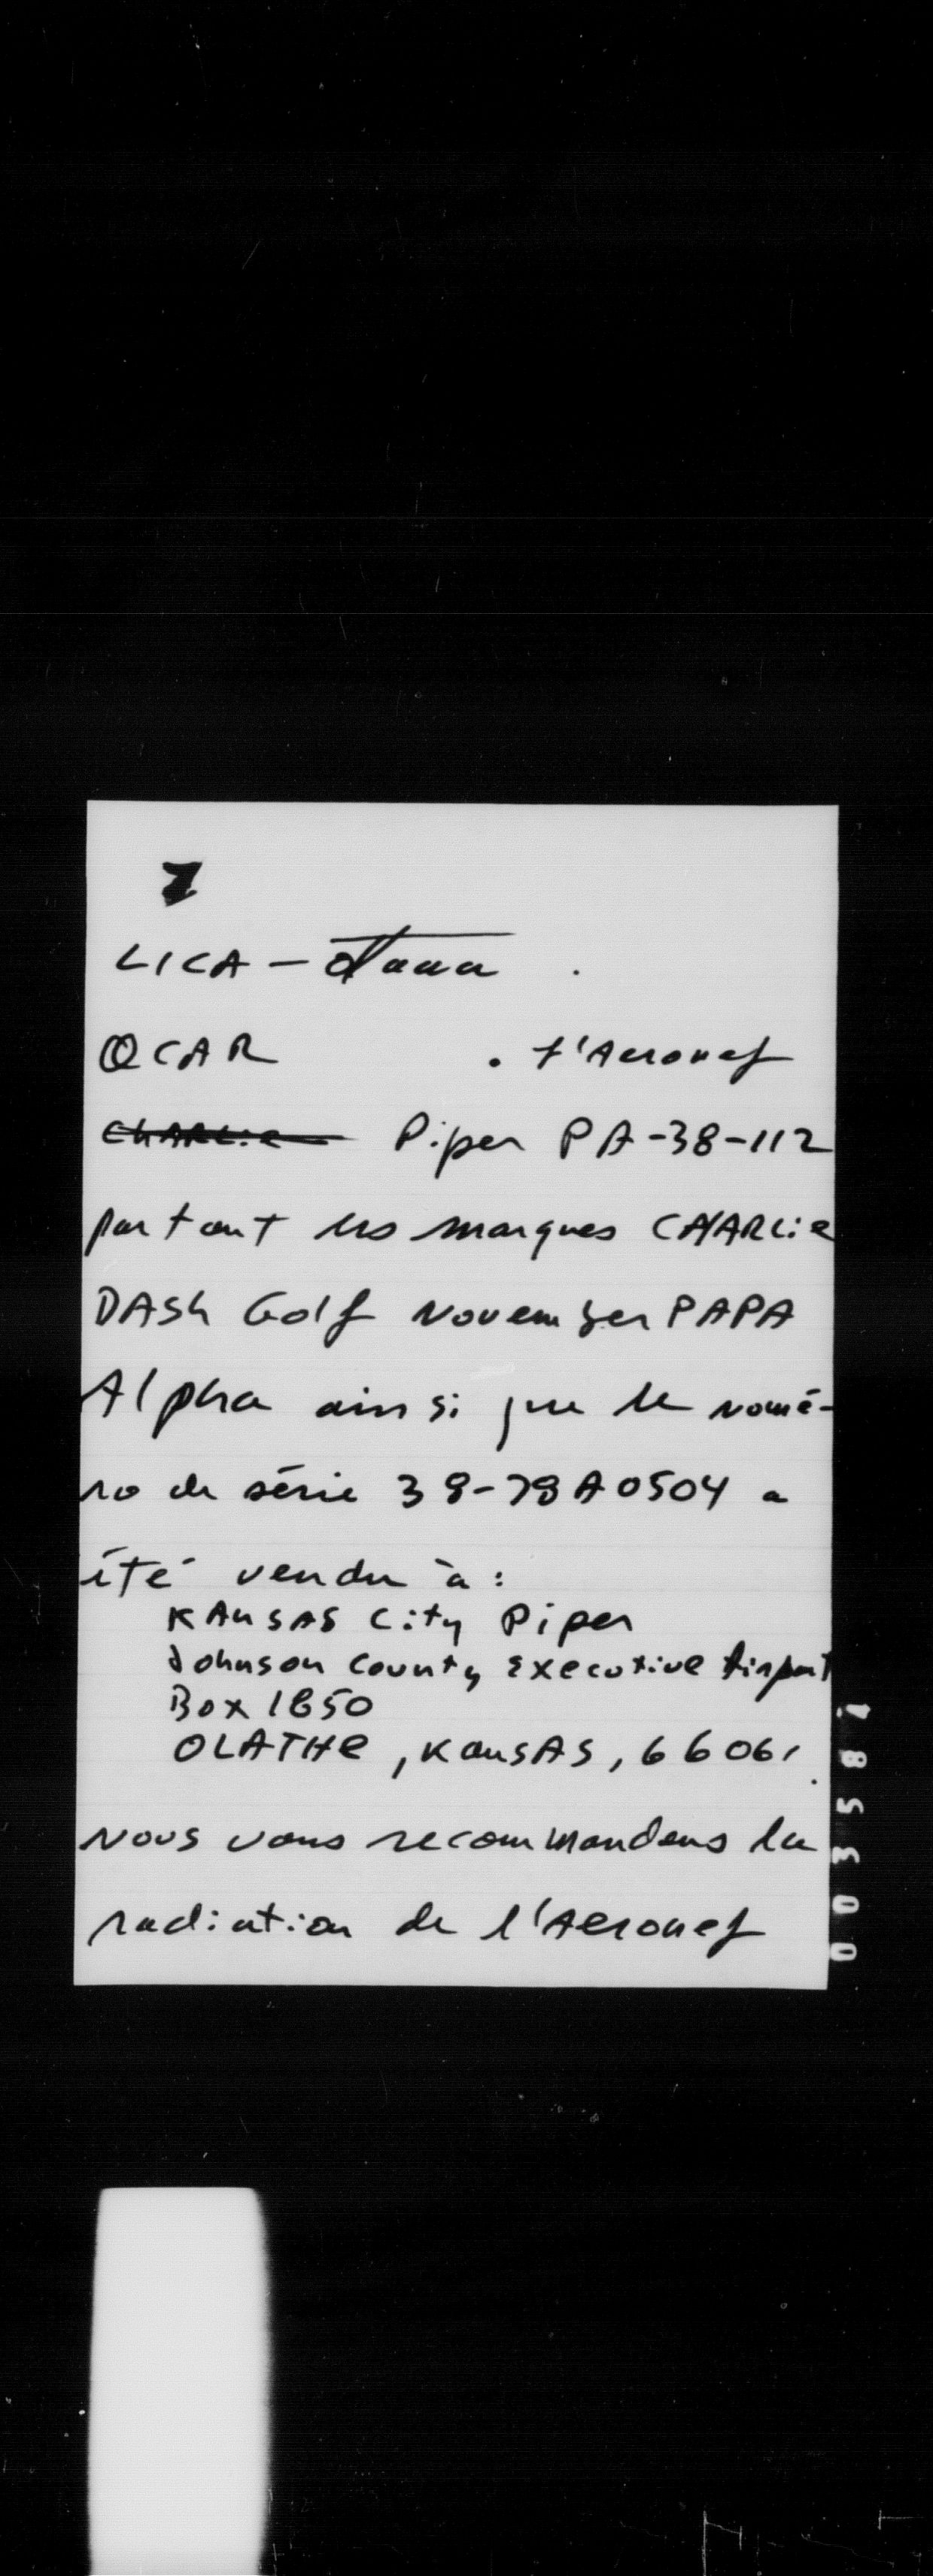 LICA - Ottawa .
QCAR . l'Aeronef
CHARLie Piper PA-38-112
portant les marques CHARLie
DASh Golf November PAPA
Alpha ainsi que le numé-
ro de série 38-78A0504 a
été vendu à :
KANSAS City Piper
Johnson County Executive Airport
Box 1850
OLATHe, KansAS, 66061.
Nous vous recommandons la
radiation de l'Aeronef
003581